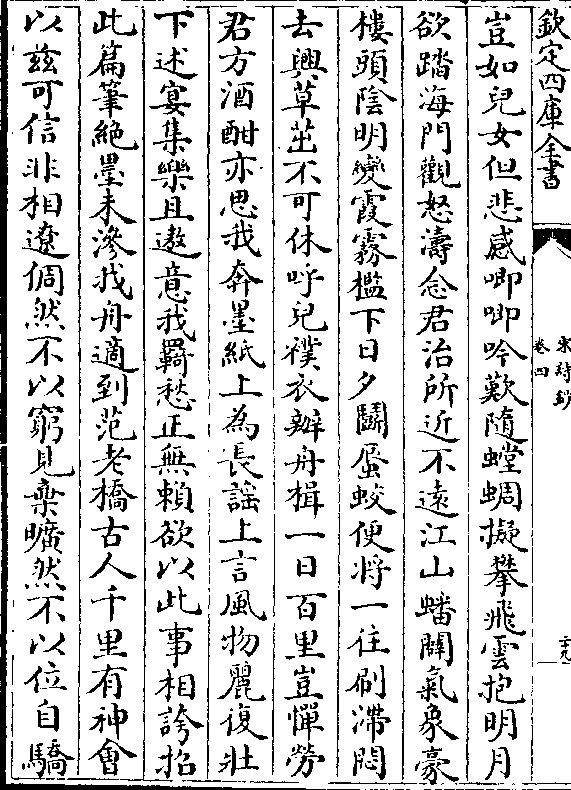 欽定四庫全書
宋詩鈔
卷四
二十九
豈如兒女但悲感唧唧吟歎隨螳蜩擬攀飛雲抱明月
欲踏海門觀怒濤念君治所近不遠江山蟠闢氣象豪
樓頭陰明變霞霧檻下日夕鬭蜃蛟便將一往刷滯悶
去興草茁不可休呼兒襆衣辦舟楫一日百里豈憚勞
君方酒酣亦思我奔墨紙上為長謡上言風物麗復壯
下述宴集樂且遨意我羇愁正無賴欲以此事相誇招
此篇筆絶墨未滲我舟適到范老橋古人千里有神會
以兹可信非相遼倜然不以窮見棄曠然不以位自驕